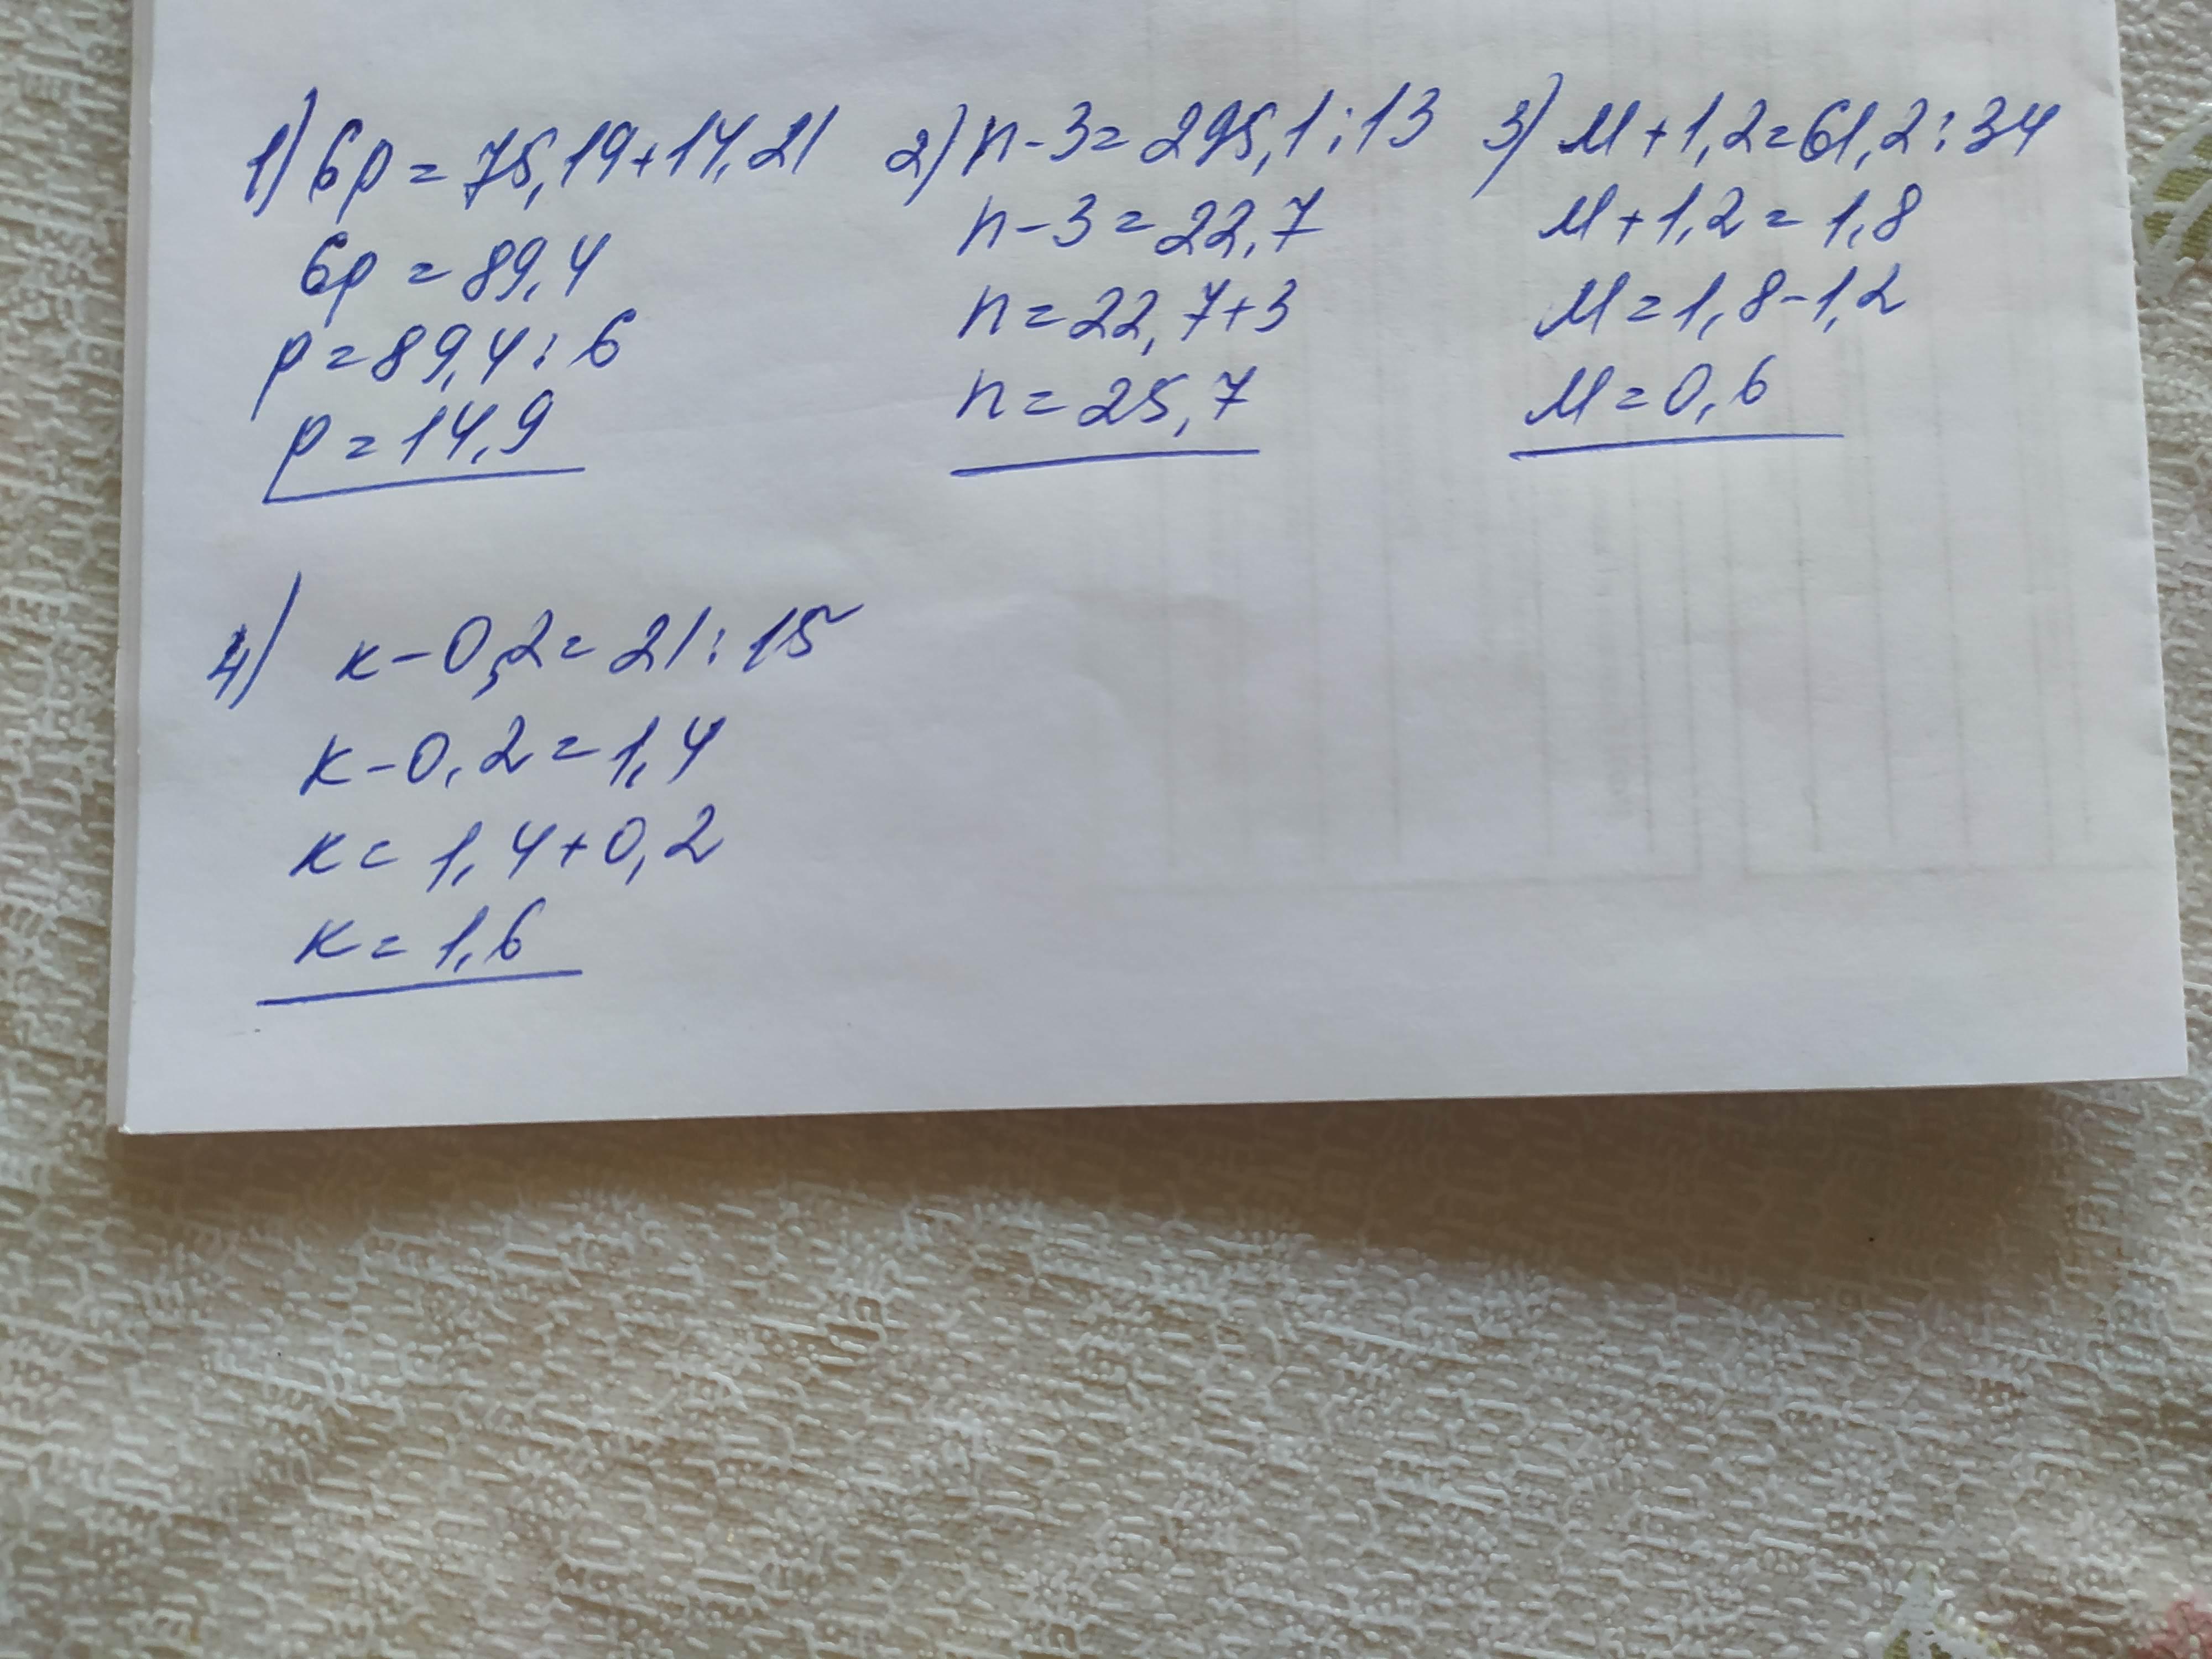 1) 6p = 75,19+14,21
6p = 89,4
p = 89,4 : 6
p = 14,9
2) n-3 = 295,1 : 13
n-3 = 22,7
n = 22,7+3
n = 25,7
3) м+1,2 = 61,2 : 34
м+1,2 = 1,8
м = 1,8-1,2
м = 0,6
4) к-0,2 = 21 : 15
к-0,2 = 1,4
к = 1,4+0,2
к = 1,6